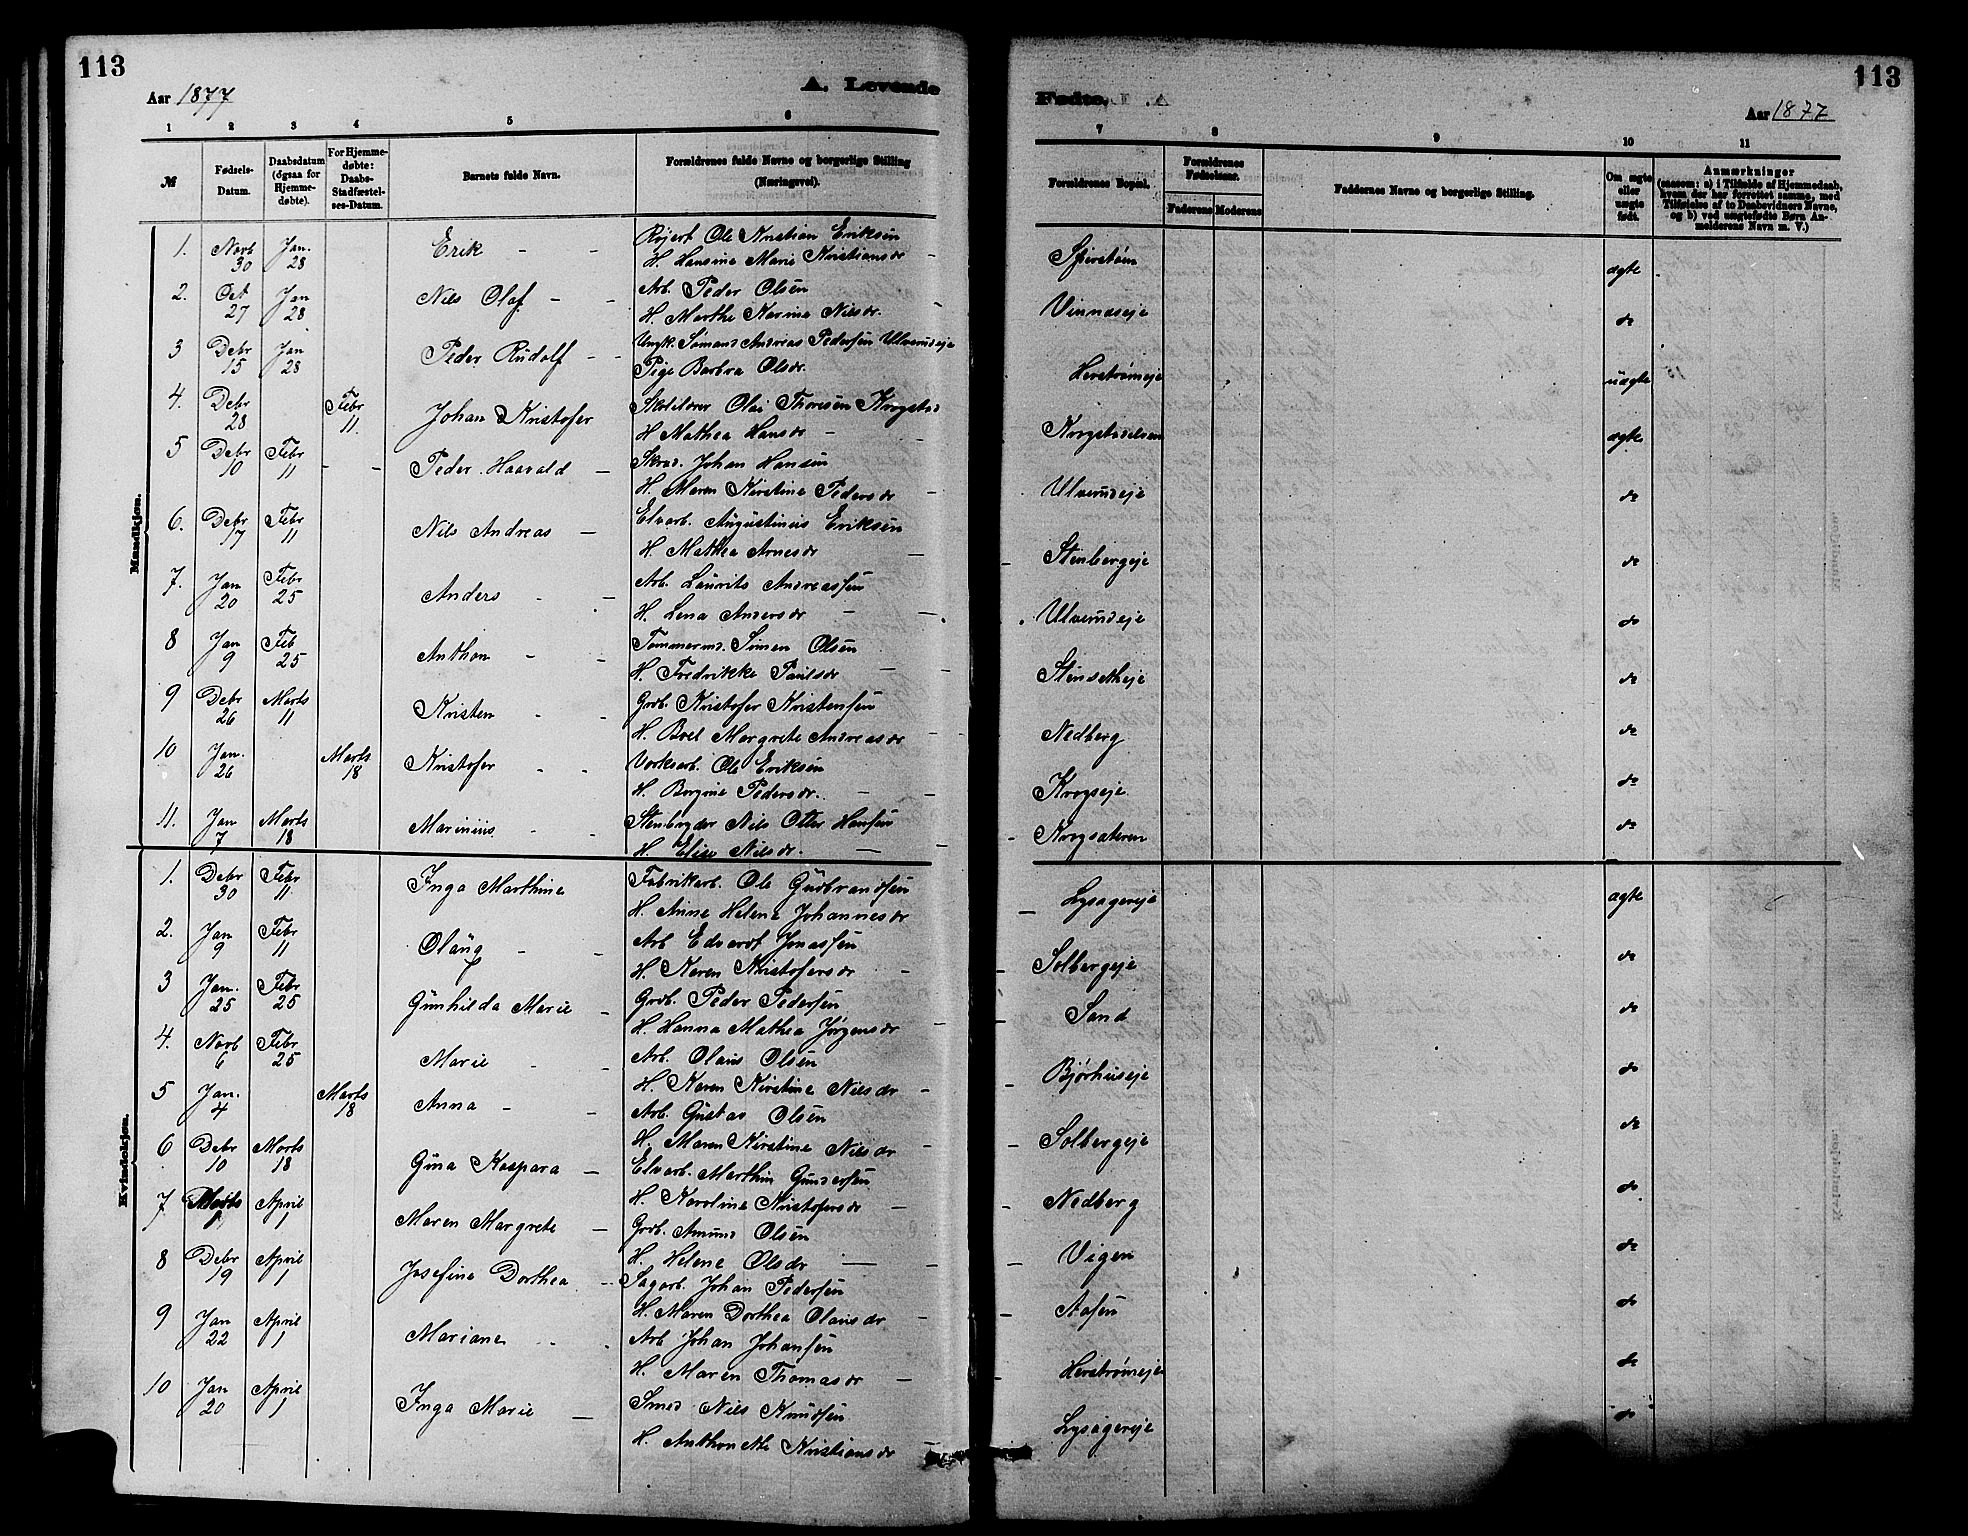 113
Aar 1877
A. Levende
1 2 3 4 5 6
№ Fødsels-Datum. Daabsdatum (ogsaa for Hjemmedøbte). For Hjemmedøbte: Daabs-Stadfæstelses-Datum. Barnets fulde Navn. Forældrenes fulde Navne og borgerlige Stilling (Næringsvei).
Mandkjøn.
1. Novb 30 Jan. 28 Erik - - Røjert Ole Kristian Eriksen
H. Hansine Marie Kristiansdr -
2. Oct 27 Jan 28 Nils Olaf - - Arb. Peder Olsen
H. Marthe Karine Nilsdr.
3 Debr 15 Jan 28 Peder Rudolf - - Ungk. Simans Andreas Pedersen Ulverudeje
Pige Barbra Olsdr.
4. Debr 28 Febr 11. Johan Kristofer Skolelærer Olai Thoresen Krogstad
H Mathea Hansdr -
5 Debr 10 Febr 11 - - Peder Haavald - Skræd. Johan Hansen
H. Maren Kirstine Pedersdr -
6. Debr 17 Febr 11 Nils Andreas - Elvarb. Augustinus Eriksen
H. Mathea Arnesdr -
7. Jan 20 Febr 25 Anders - - Arb. Laurits Andreassen
H. Lena Andersdr - -
8 Jan 9 Feb 25 Anthon - - Tømmermd. Simen Olsen
H. Fredrikke Paulsdr - -
9 Debr 26 Marts 11 Kristen - - Grdb. Kristofer Kristensen
H. Boel Margrete Andreasdr -
10 Jan. 26 Marts 18 Kristofer - - Værksarb. Ole Eriksen
H. Bergine Pedersdr. - -
11. Jan 7 Marts 18 Marinius - - Stenbryder Nils Otter Hansen
H. Elise Nilsdr. - -
Kvindekjøn.
1. Debr 30 Febr 11 Inga Marthine Fabrikarb. Ole Gudbrandsen
H. Anne Helene Johannesdr
2. Jan 9 Febr 11 Olaug - - Arb Edvardt Jonassen
H. Karen Kristofersdr -
3 Jan. 25 Febr 25 Gunhilda Marie - Grdb. Peder Pedersen
H. Hanna Mathea Jørgensdr -
4. Novb 6 Febr 25 Marie - - Arb. Olaus Olsen
H. Karen Kirstine Nilsdr -
5 Jan. 4 Marts 18 Anna - - Arb. Gustav Olsen
H. Maren Kirstine Nilsdr -
6 Debr 10 Marts 18 Gina Kaspara - Elvarb. Marthin Gundersen
H. Karoline Kristofersdr -
7 Marts 1 April 1 Maren Margrete - Grdb. Amund Olsen
H. Helene Olsdr - -
8 Debr 19 April 1 Josefine Dorthea - Sagarb. Johan Pedersen
H. Maren Dorthea Olausdr -
9 Jan 22 April 1 Mariane - - Arb Johan Johansen
H. Maren Thomasdr -
10 Jan 20 April 1 Inga Marie - Smed Nils Knudsen
H. Anthonette Kristiansdr -
Fødte.
113
Aar 1877
7 8 9 10 11
Forældrenes Bopæl. Forældrenes Fødselsaar. Faderens Moderens Faddernes Navne og borgerlige Stilling. Om ægte eller uægte født. Anmærkninger (saasom: a) i Tilfælde af Hjemmedaab, hvem der har forrettet samme, med Tilføielse af to Daabsvidners Navne, og b) ved uægtefødte Børn Anmelderens Navn m. V.)
Spirstøm ægte
Vinnæseje do
Herstrømeje uægte
Krogstadelven ægte
Ulverudeje do
Stenbergeje do
Ulverudeje do
Stensetheje do
Nedberg do
Krogseje do
Krogsæteren do
Lysagereje ægte
Solbergeje do
Sand do
Bjørhuseje do
Solbergeje do
Nedberg do
Vigen do
Aasen do
Herstrømeje do
Lysagereje do